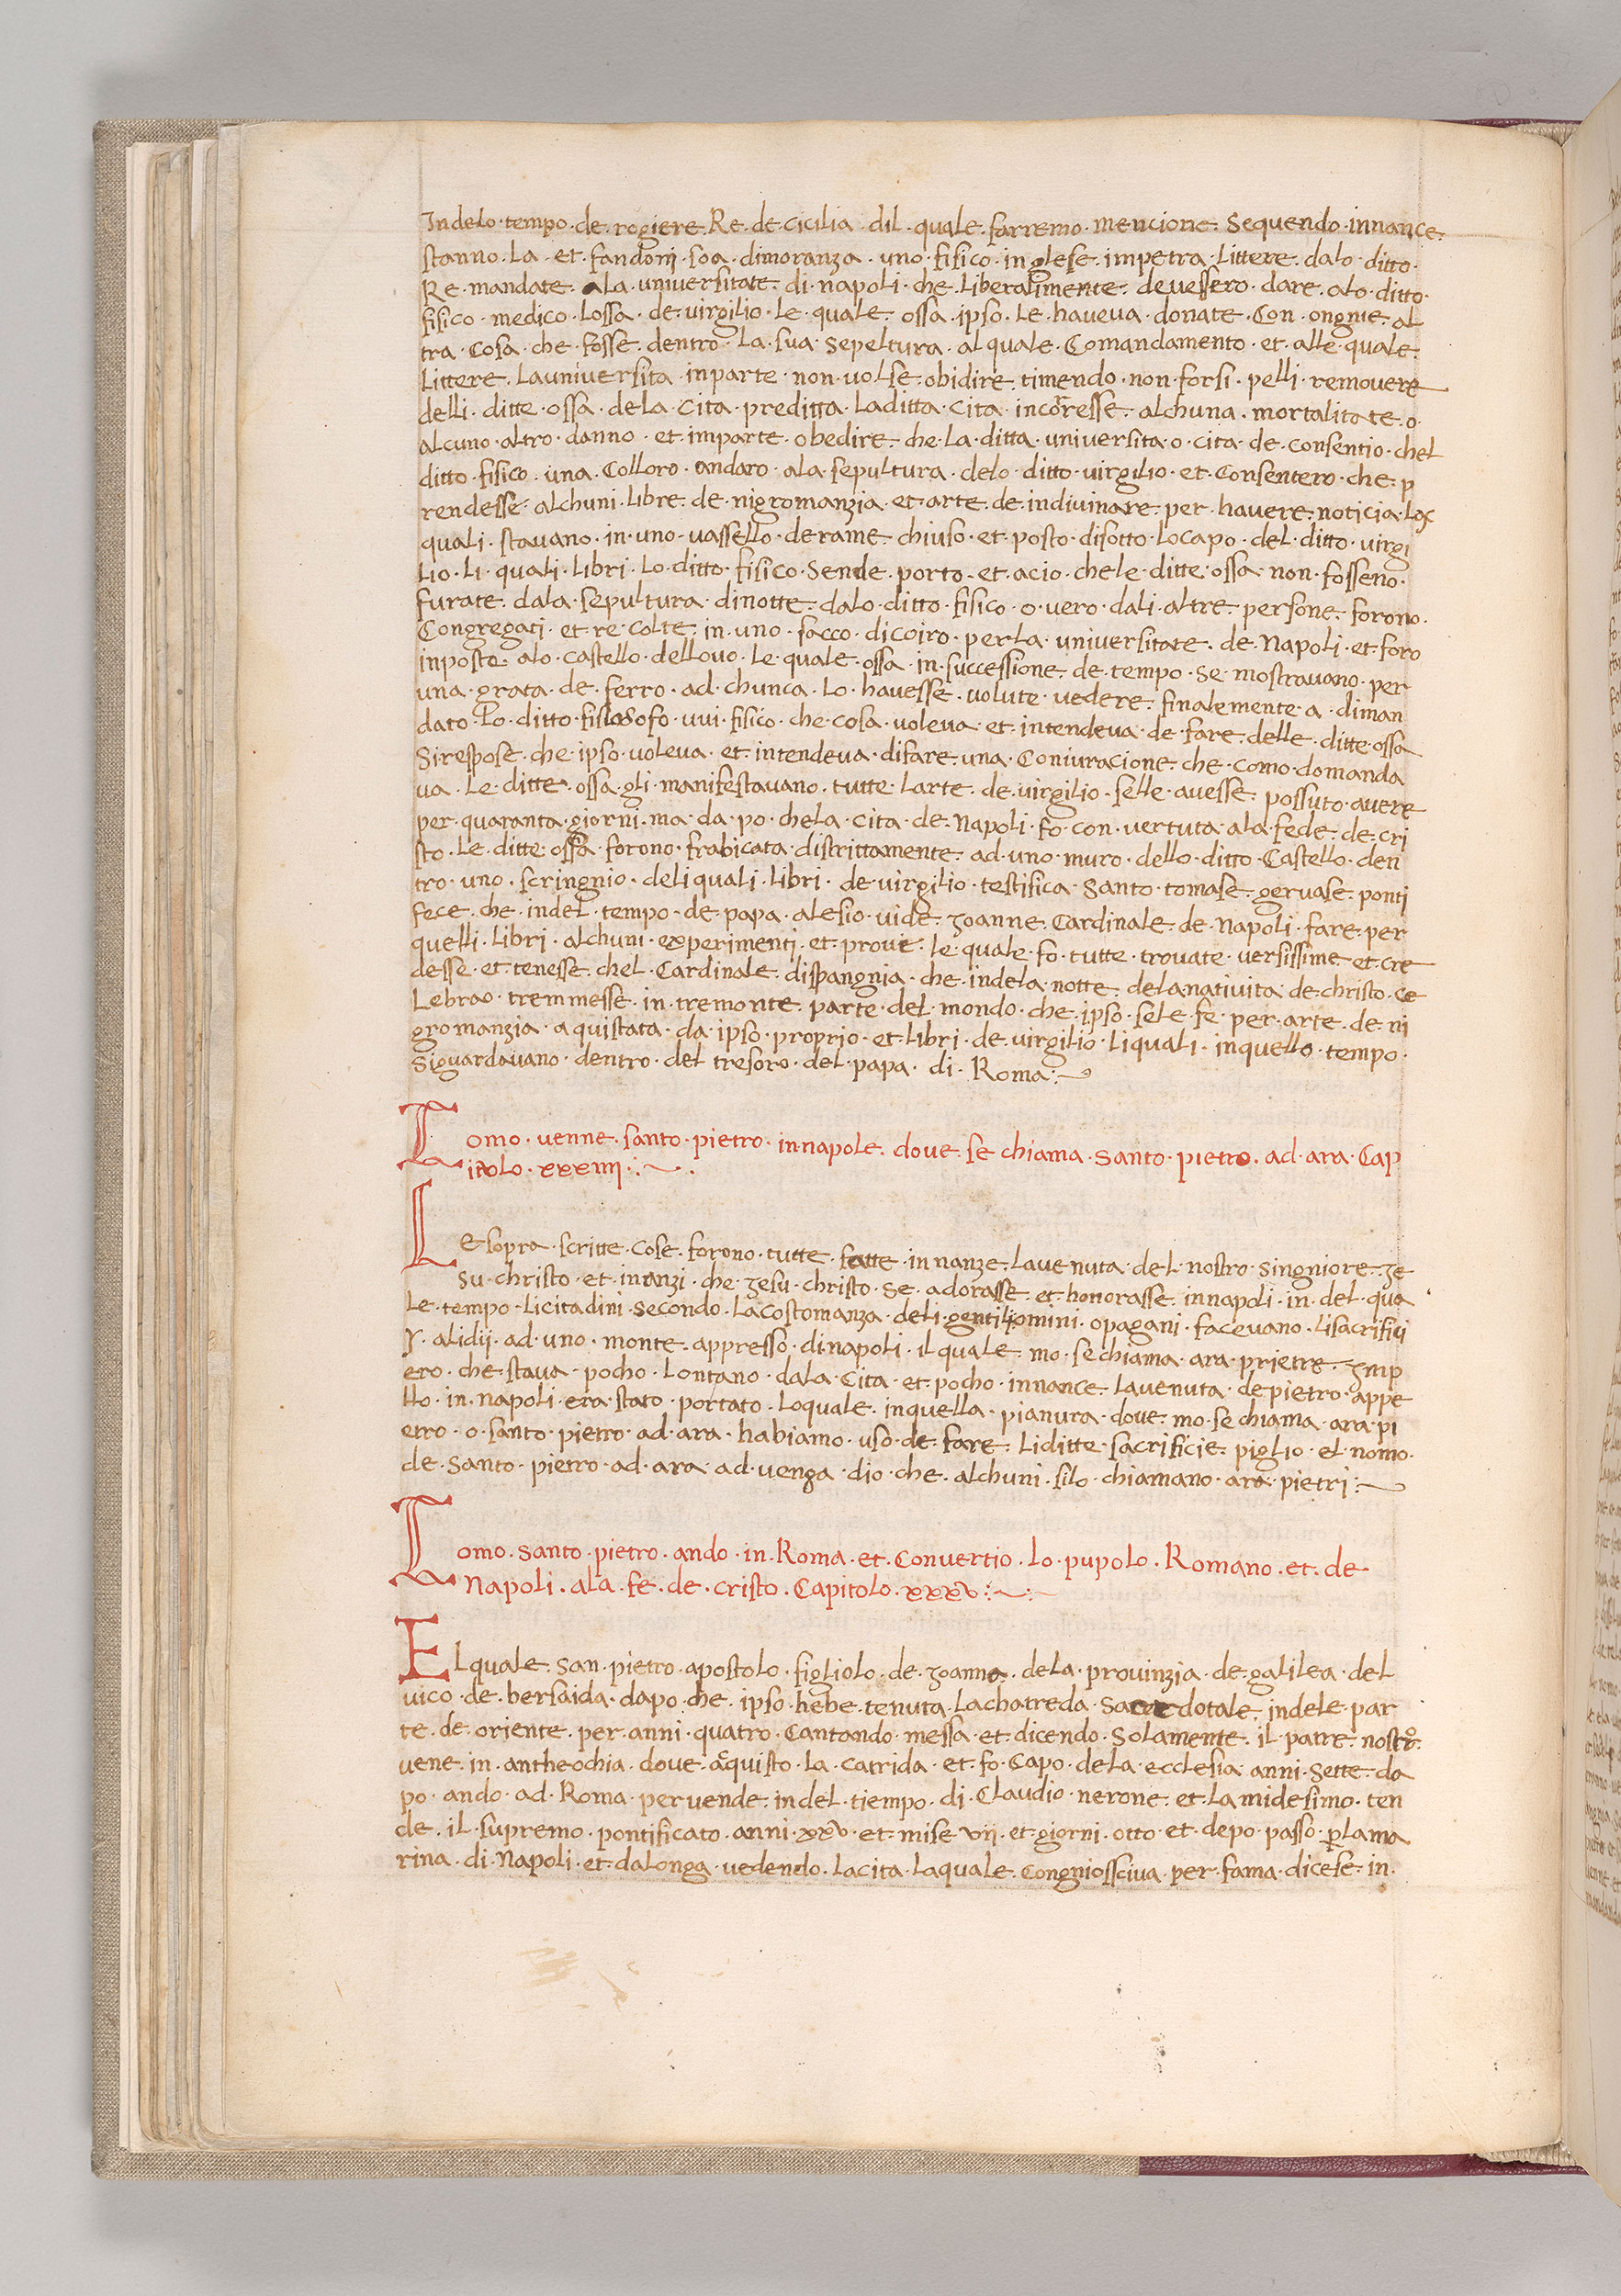 Indelo·tempo·de·rogiere·Re·de·cicilia·dil·quale·farremo·mencione·Sequendo·innance·
stanno·la·et·fandonj·soa·dimoranza·uno·fisico·inglese·impetra·littere·dalo·ditto·
Re·mandate·ala·universitate·di·napoli·che·liberalimente·devessero·dare·alo·ditto·
fisico·medico·lossa·de·virgilio·le·quale·ossa·ipso·le·haveva·donate·Con·ongnie·al
tra·cosa·che·fosse·dentro·la·sua·sepeltura·al quale·Comandamento·et·alle·quale·
littere·launiversita·inparte·non·volse·obidire·timendo·non·forsi·pelli·removere
delli·ditte·ossa·dela·cita·preditta·laditta·cita·incorresse·alchuna·mortalitate·o·
alcuno·altro·danno·et·imparte·obedire·che·la·ditta·universita·o·cita·de·consentio·chel
ditto·fisico·una·colloro·andaro·ala·sepultura·delo·ditto·virgilio·et·Consentero·che·p
rendesse·alchuni·libre·de·nigromanzia·et·arte·de·indivinare·per·havere·noticia·
quali·stavano·in·uno·vassello·derame·chiuso·et·posto·disotto·locapo·del·ditto·virgi
lio·li·quali·libri·lo·ditto·fisico·Sende·porto·et·acio·chele·ditte·ossa·non·fosseno·
furate·dala·sepultura·dinotte·dalo·ditto·fisico·o·vero·dali·altre·persone·forono·
Congregati·et·re·colte·in·uno·sacco·dicoiro·perla·universitate·de·Napoli·et·foro
inposte·alo·castello·dellovo·le·quale·ossa·in·successione·de·tempo·se·mostravano·per
una·grata·de·ferro·ad·chunca·lo·havesse·volute·vedere·finalemente·a·diman
dato·lo·ditto·filosofo·vui·fisico·che·cosa·voleva·et·intendeva·de·fare·delle·ditte·ossa
Si·respose·che·ipso·voleva·et·intendeva·difare·una·Coniuracione·che·como·domanda
va·le·ditte·ossa·gli·manifestavano·tutte·larte·de·virgilio·selle·avesse·possuto·avere
per·quaranta·giorni·ma·da·po·chela·cita·de·Napoli·fo·con·vertuta·ala·fede·de·cri
sto·le·ditte·ossa·forono·frabicata·distrittamente·ad·uno·muro·dello·ditto·Castello·den
tro·uno·scringnio·deli quali·libri·de·virgilio·testifica·Santo·tomase·gervase·ponti
fece·che·indel·tempo·de·papa·alesio·vide·zoanne·Cardinale·de·Napoli·fare·per
quelli·libri·alchuni·experimenti·et·prove·le·quale·fo·tutte·trovate·verissime·et·cre
desse·et·tenesse·chel·Cardinale·dispangnia·che·indela·notte·delanativita·de·christo·ce
lebrao·tremmesse·in·tremonte·parte·del·mondo·che·ipso·sele·fe·per·arte·de·ni
gromanzia·aquistata·da·ipso·proprio·et·libri·de·virgilio·liquali·inquello·tempo·
Siguardavano·dentro·del tresoro·del·papa·di·Roma:~
Como·venne·santo·pietro·innapole·dove·se chiama·santo·pietro·ad·ara·Cap
itolo·xxxiiij:~·
Le sopra·scritte·cose·forono·tutte·fatte·innanze·lavenuta·del·nostro·singniore·ze
su·christo·et·inanzi·che·zesu·christo·se·adorasse·et·honorasse·innapoli·in·del·qua
le·tempo·licitadini·secondo·lacostomanza·deli·gentiliomini·opagani·facevano·lisacrifici
y·alidij·ad·uno·monte·appresso·dinapoli·il quale·mo·sechiama·ara·prietre·zmp
ero·che·stava·pocho·lontano·dala·cita·et·pocho·innance·lavenuta·depietro·appe
llo·in·napoli·era·stato·portato·loquale·inquella·pianura·dove·mo·se chiama·ara·pi
etro·o·santo·pietro·ad·ara·habiamo·uso·de·fare·liditte·sacrificie·piglio·el·nomo·
de·santo·pietro·ad·ara·ad·venga·dio·che·alchuni·silo·chiamano·ara·pietri:~
Como·santo·pietro·ando·in·Roma·et·Convertio·lo·pupolo·Romano·et·de
Napoli·ala·fe·de·cristo·Capitolo·xxxv:~:
Elquale·san·pietro·apostolo·figliolo·de·zoanna·dela·provinzia·de·galilea·del
vico·de·bersaida·dapo·che·ipso·hebe·tenuta·lachatreda·Sacerdotale·indele·par
te·de·oriente·per·anni·quatro·Cantando·messa·et·dicendo·solamente·il·patre·nostro·
vene·in·antheochia·dove·aquisto·la·catrida·et·fo·capo·dela·ecclesia·anni·sette·da
po·ando·ad·Roma·pervende·indel·tiempo·di·Claudio·nerone·et·lamidesimo·ten
de·il·supremo·pontificato·anni·xxv·et·mise·vii·et·giorni·otto·et·depo·passo·perlama
rina·di·Napoli·et·dalonga·vedendo·lacita·laquale·Congniossciva·per·fama·dicese·in·